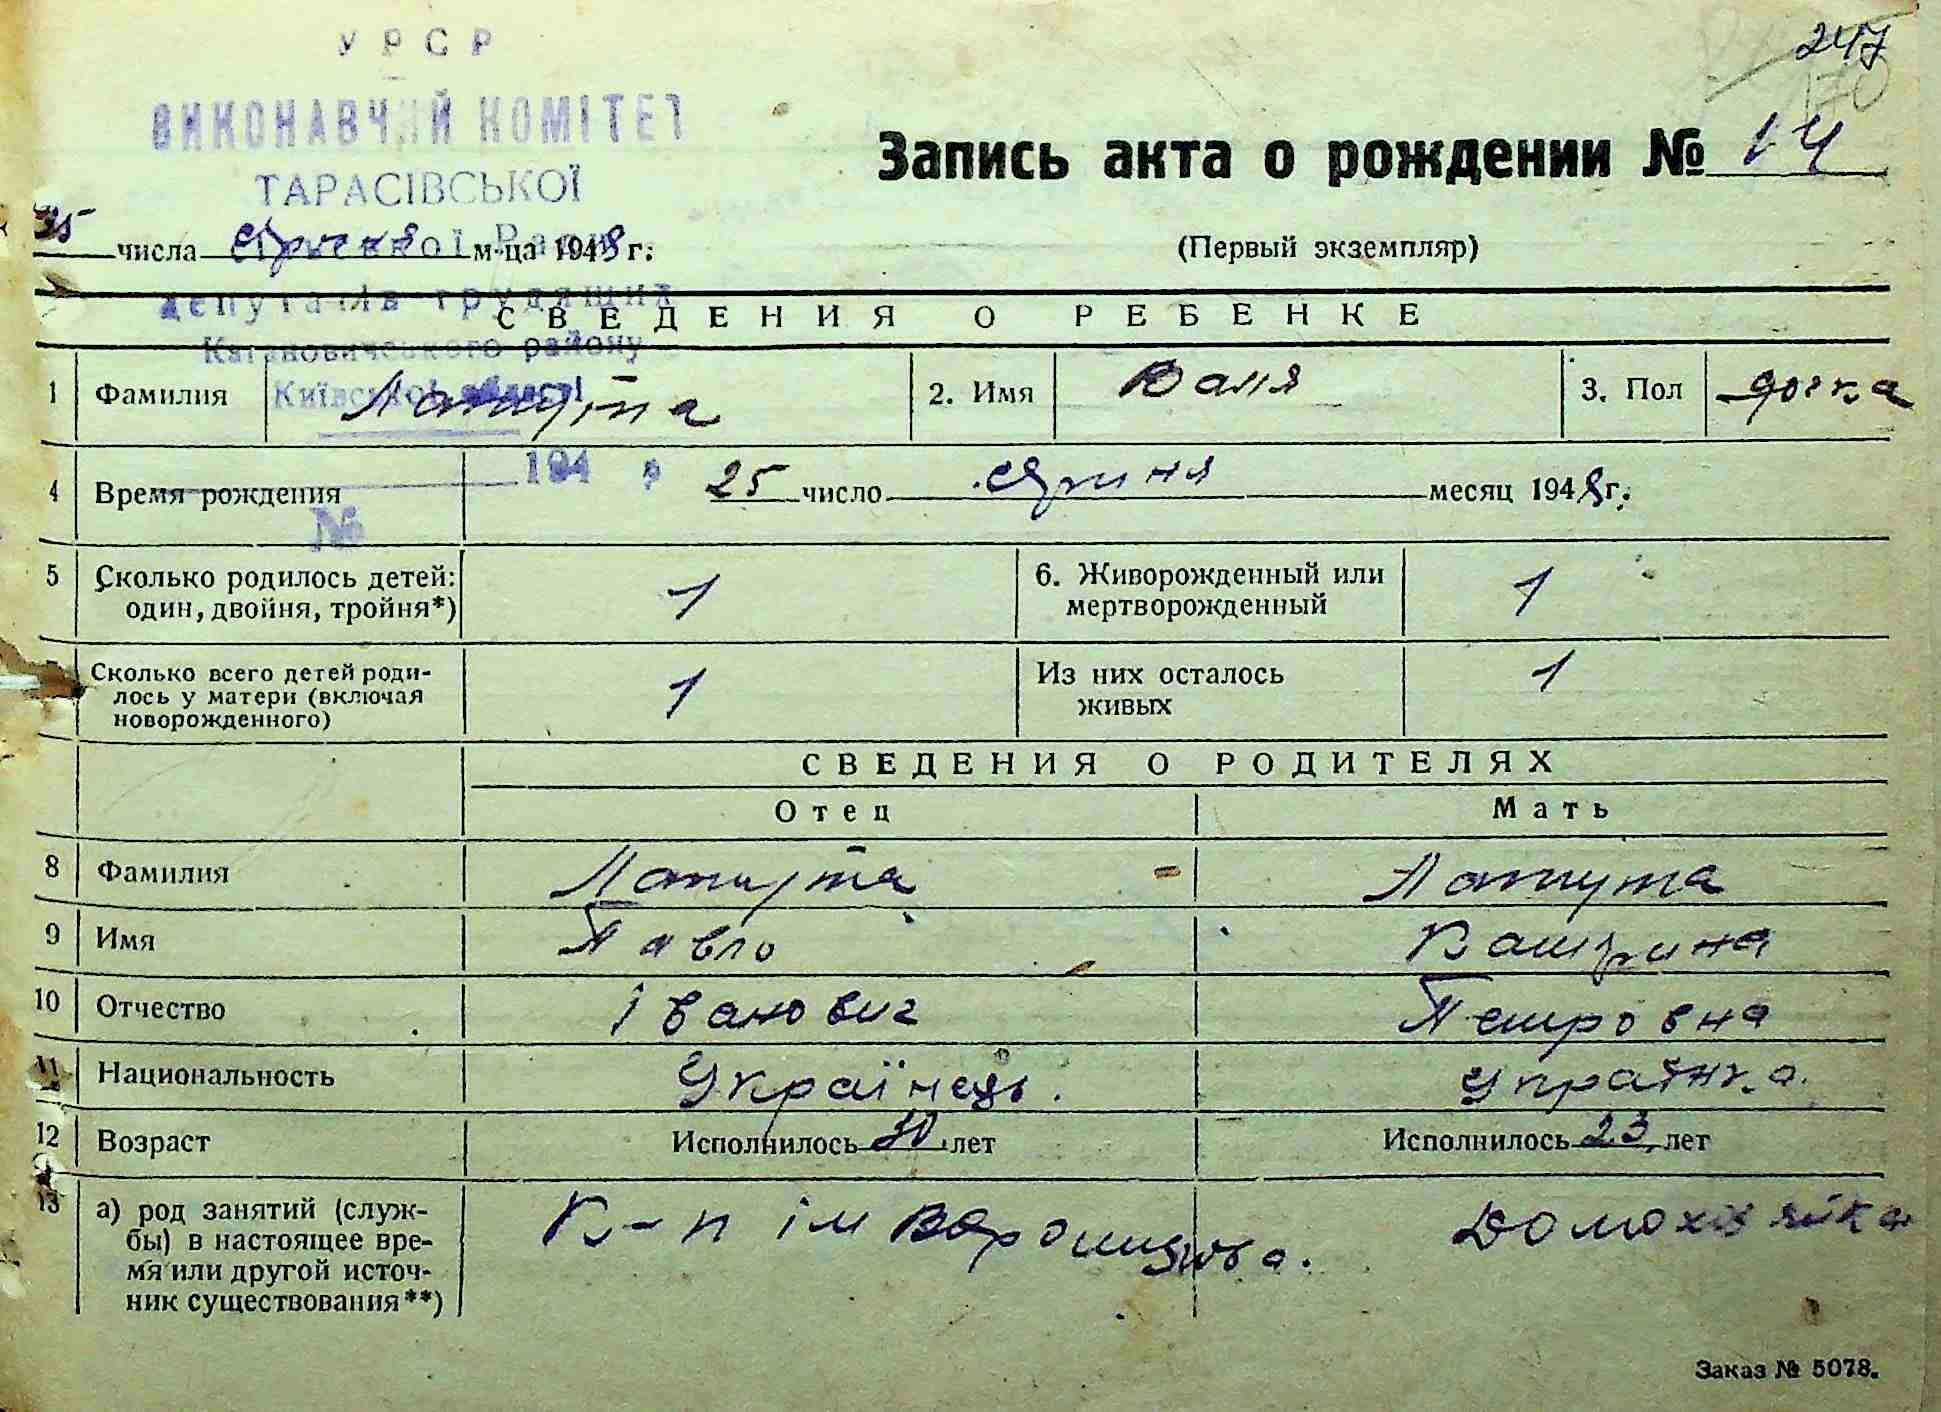 УРСР
247
170
ВИКОНАВЧИЙ КОМІТЕТ
Запись акта о рождении № 14
ТАРАСІВСЬКОЇ
25 числа серпня м-ца 1948 г.
(Первый экземпляр)
депутатів трудящих
СВЕДЕНИЯ О РЕБЕНКЕ
Кагановичського району
Київської області
1 Фамилия Лапута 2. Имя Валя 3. Пол дочка
194 р
4 Время рождения 25 число серпня месяц 1948 г.
№
5 Сколько родилось детей: 1 6. Живорожденный или 1
один, двойня, тройня*) мертворожденный
Сколько всего детей роди- 1 Из них осталось 1
лось у матери (включая живых
новорожденного)
СВЕДЕНИЯ О РОДИТЕЛЯХ
Отец Мать
8 Фамилия Лапута Лапута
9 Имя Павло Катрина
10 Отчество Іванович Петровна
11 Национальность Українець. Українка.
12 Возраст Исполнилось 30 лет Исполнилось 23 лет
13 а) род занятий (служ- К-п ім Ворошилова. Домохазяйка
бы) в настоящее вре-
мя или другой источ-
ник существования**)
Заказ № 5078.